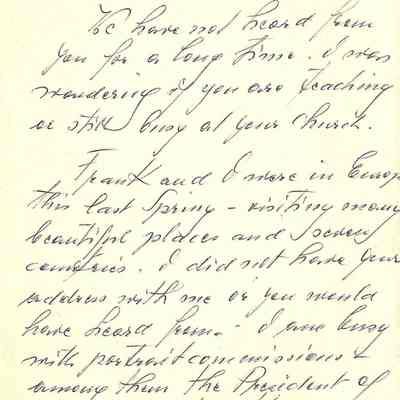 We have not heard from
you for a long time. I was
wondering if you are teaching
or still busy at your Church.
Frank and I were in Europ
this last Spring - visiting many
beautiful places and seveny
countries. I did not have your
address with me or you would
have heard from - I am busy
with portrait commissions &
among them the President of